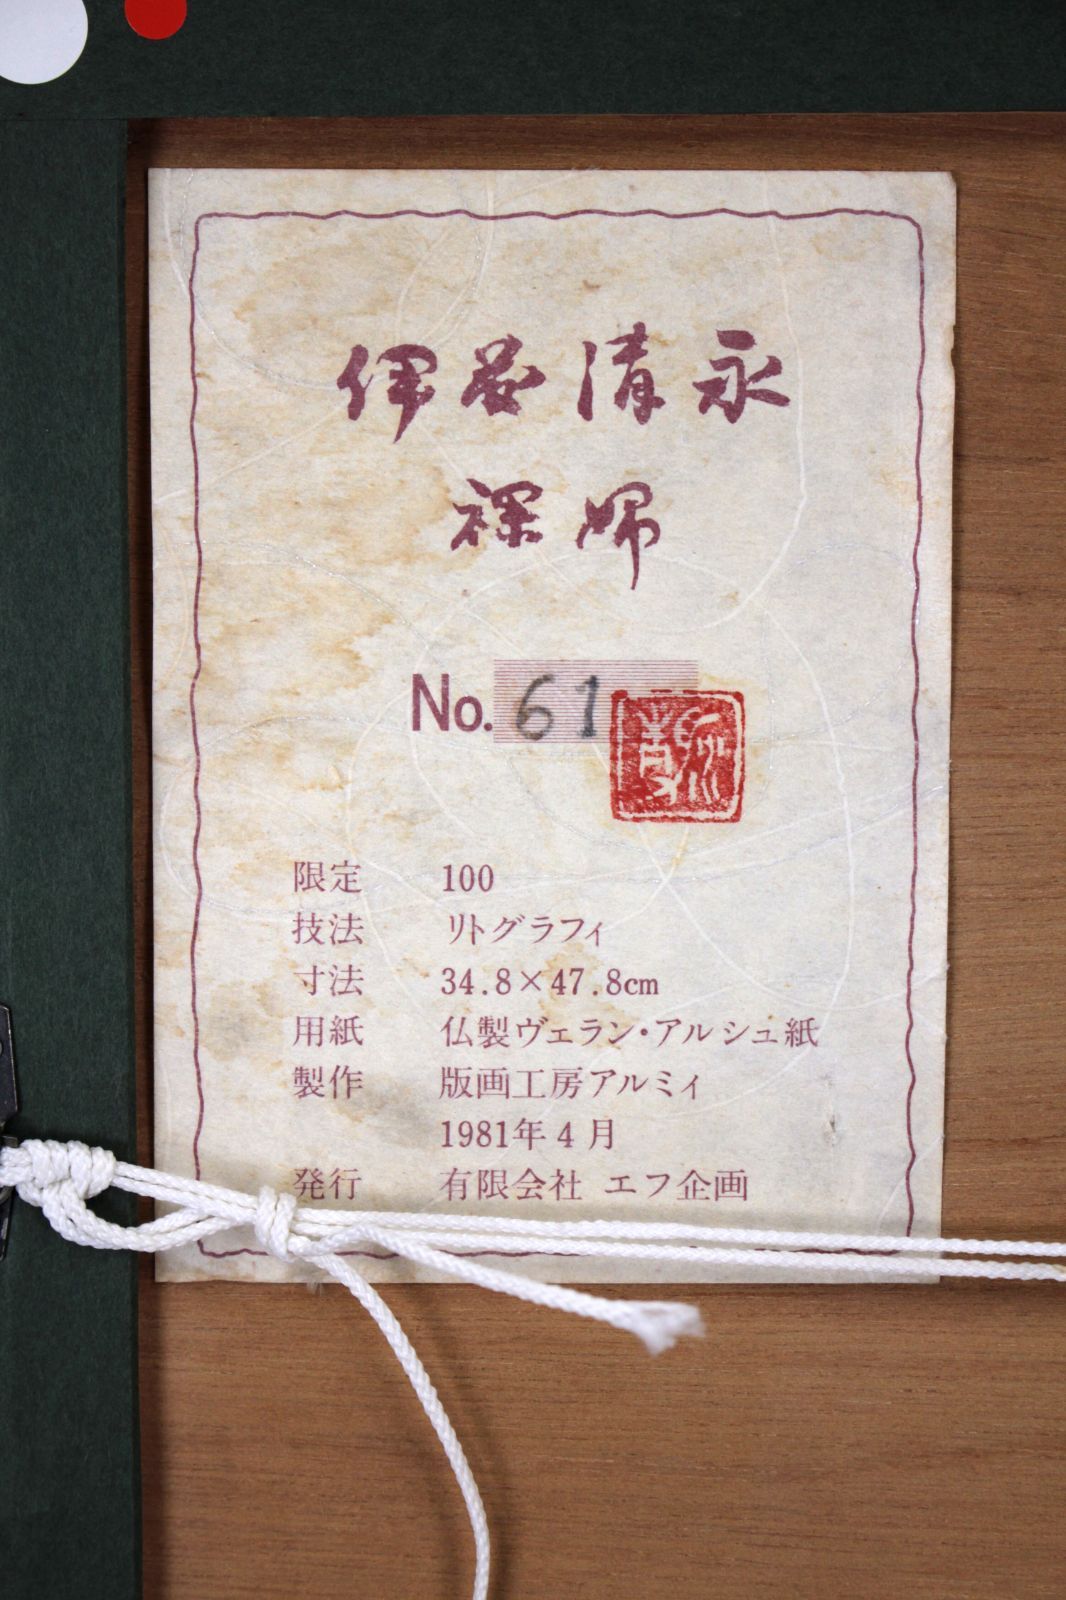 伊谷清永
裸婦
No. 61
限定 100
技法 リトグラフィ
寸法 34.8×47.8cm
用紙 仏製ヴェラン・アルシュ紙
製作 版画工房アルミィ
1981年4月
発行 有限会社 エフ企画